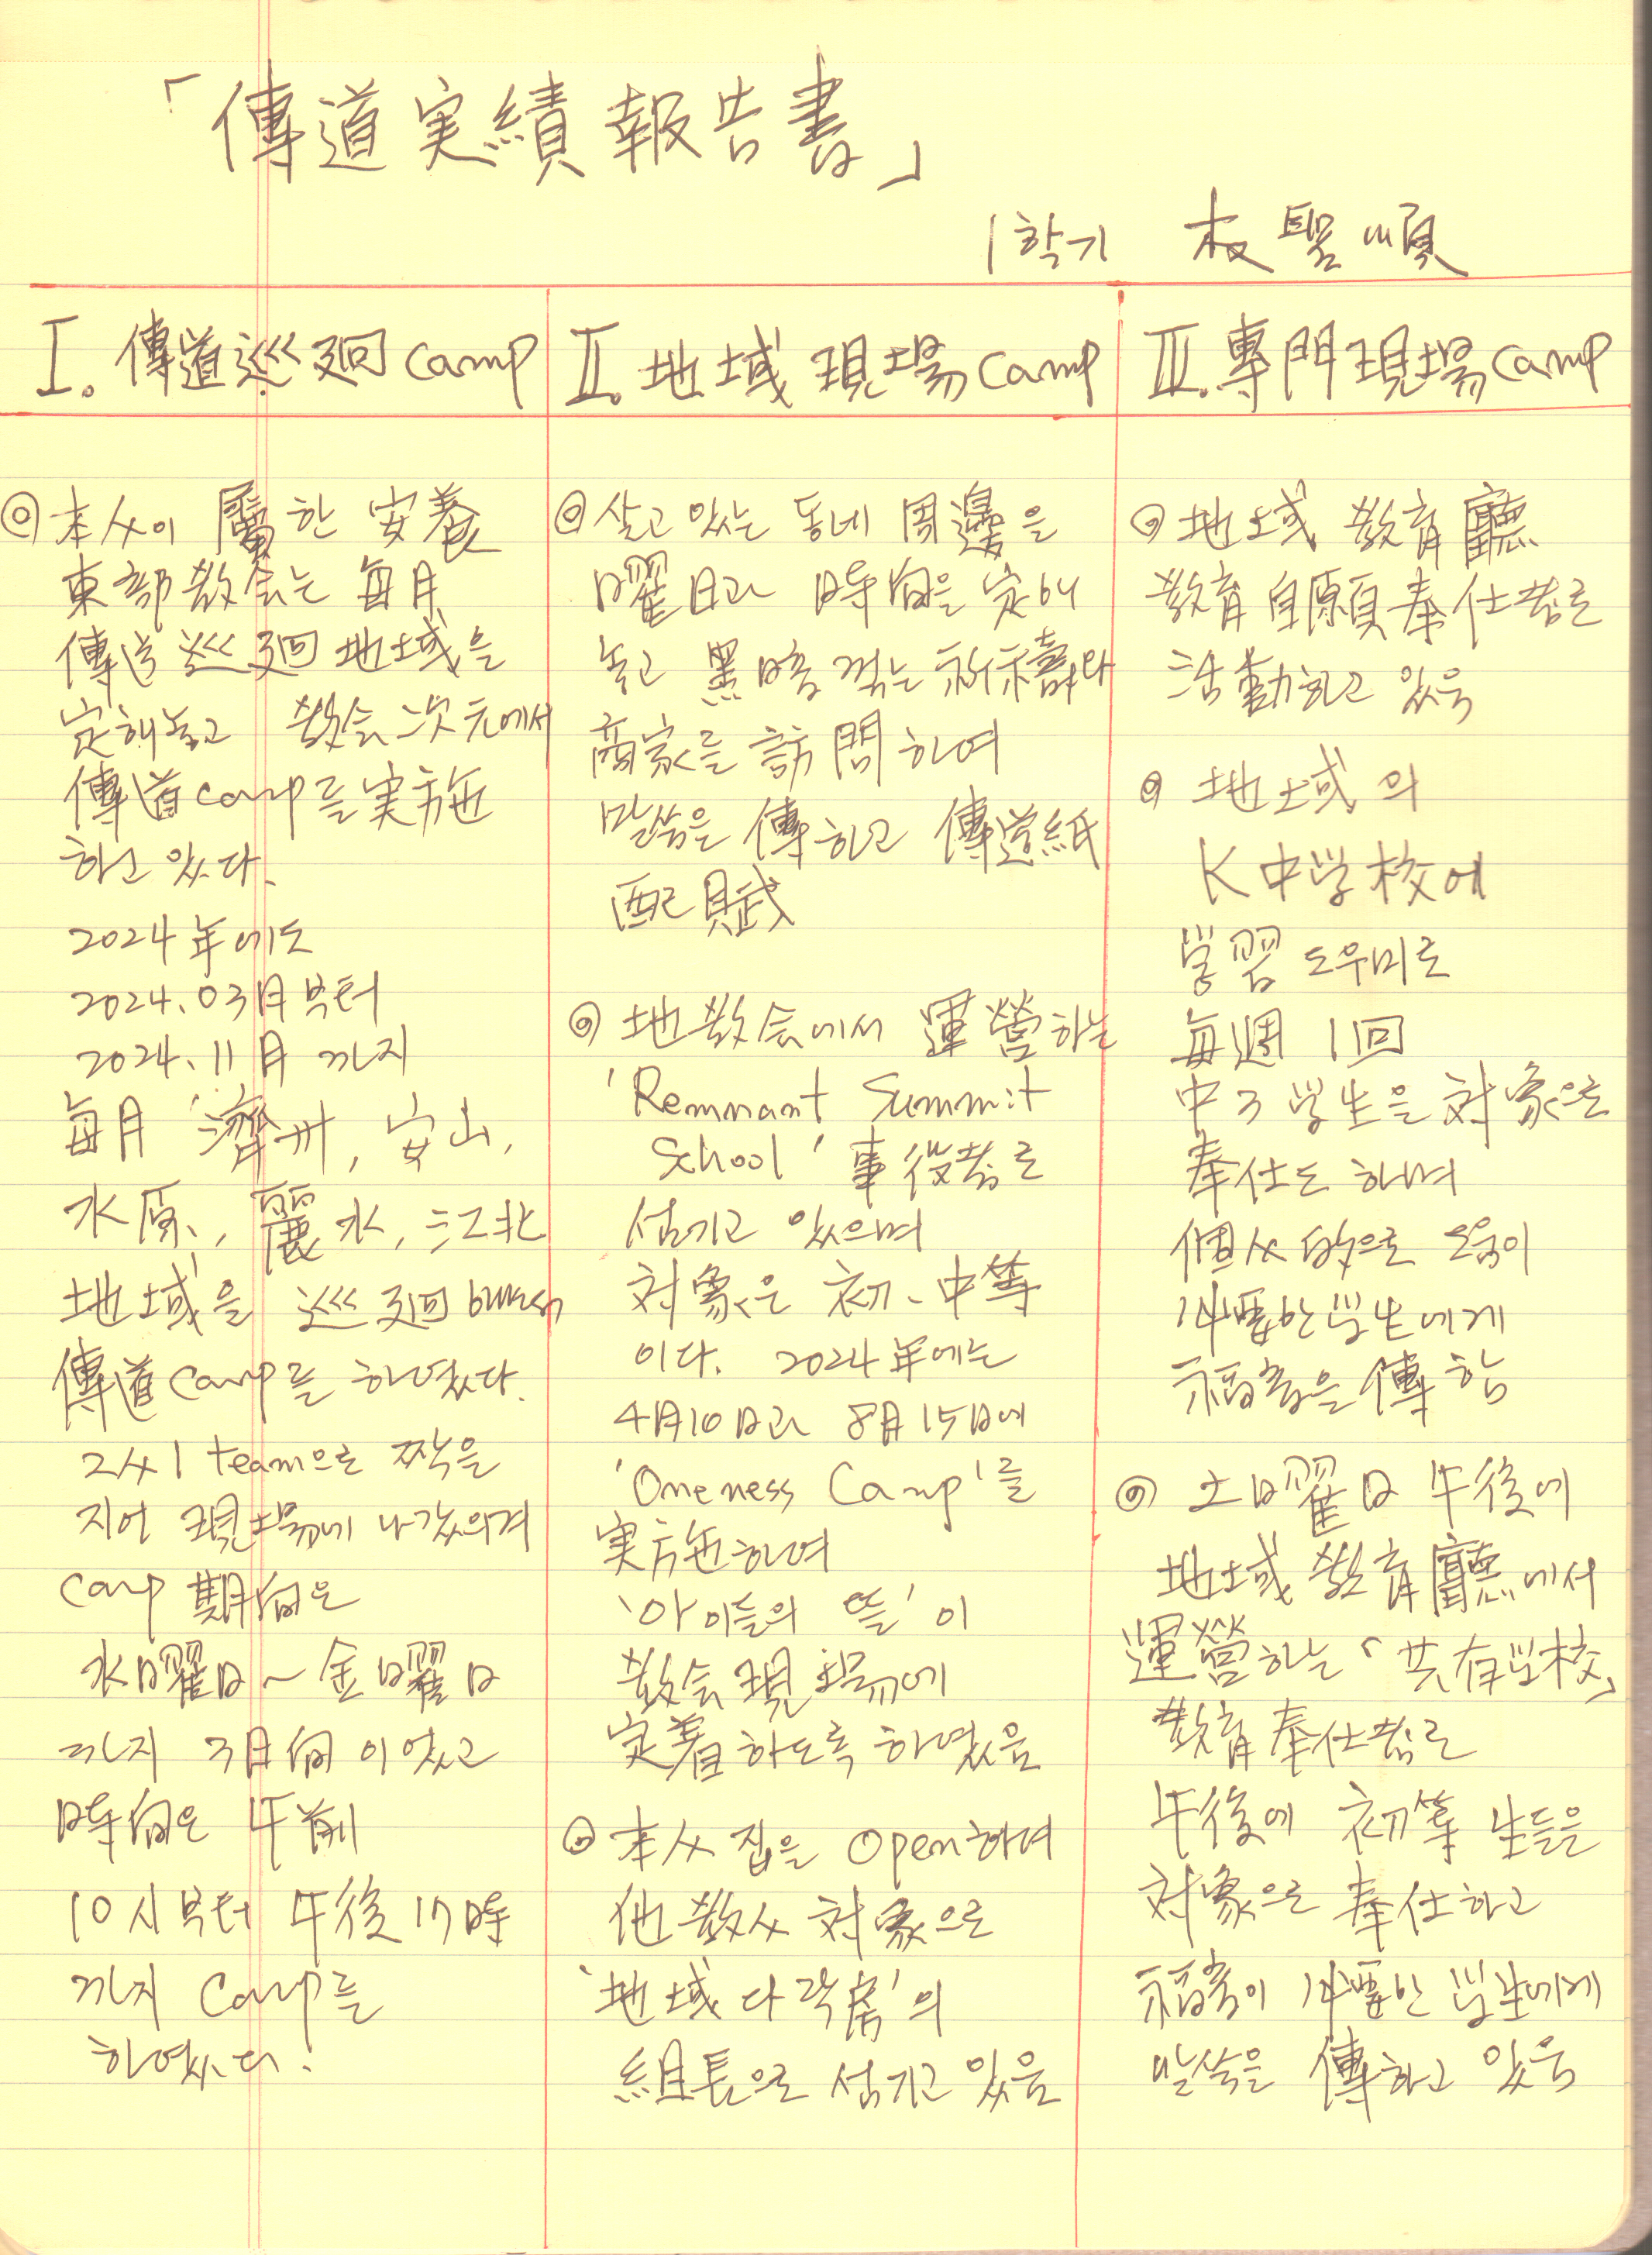 「傳道実績報告書」
1학기 朴聖順
I. 傳道巡廻 camp
◎ 本人이 屬한 安養
東部教会는 毎月
傳道 巡廻 地域을
定해놓고 教会 次元에서
傳道 camp를 実施
하고 있다.
2024年에도
2024. 03月부터
2024. 11月 까지
毎月 濟州, 安山,
水原, 麗水, 江北
地域을 巡廻하면서
傳道 camp를 하였다.
2人 1 team으로 짝을
지어 現場에 나갔으며
camp 期間은
水曜日~金曜日
까지 3日間 이었고
時間은 午前
10시부터 午後 17時
까지 camp를
하였다.
II. 地域 現場 camp
◎ 살고 있는 동네 周邊을
曜日과 時間을 定해
놓고 黑暗 꺾는 祈禱와
商家를 訪問하여
말씀을 傳하고 傳道紙
配賦
◎ 地教会에서 運營하는
'Remnant Summit
School' 事役者로
섬기고 있으며
対象은 初、中等
이다. 2024年에는
4月10日과 8月15日에
'Oneness Camp'를
実施하여
'아이들의 뜰'이
教会現場에
定着하도록 하였음
◎ 本人 집을 Open하여
他教人 対象으로
'地域 다락房'의
組長으로 섬기고 있음
III. 專門現場 camp
◎ 地域 教育廳
教育自願奉仕者로
活動하고 있음
◎ 地域의
K 中学校에
学習 도우미로
毎週 1回
中3 学生을 対象으로
奉仕도 하며
個人的으로 도움이
必要한 学生에게
福音을 傳함
◎ 土曜日 午後에
地域 教育廳에서
運營하는 「共有学校」
教育奉仕者로
午後에 初等 生들을
対象으로 奉仕하고
福音이 必要한 学生에게
말씀을 傳하고 있음